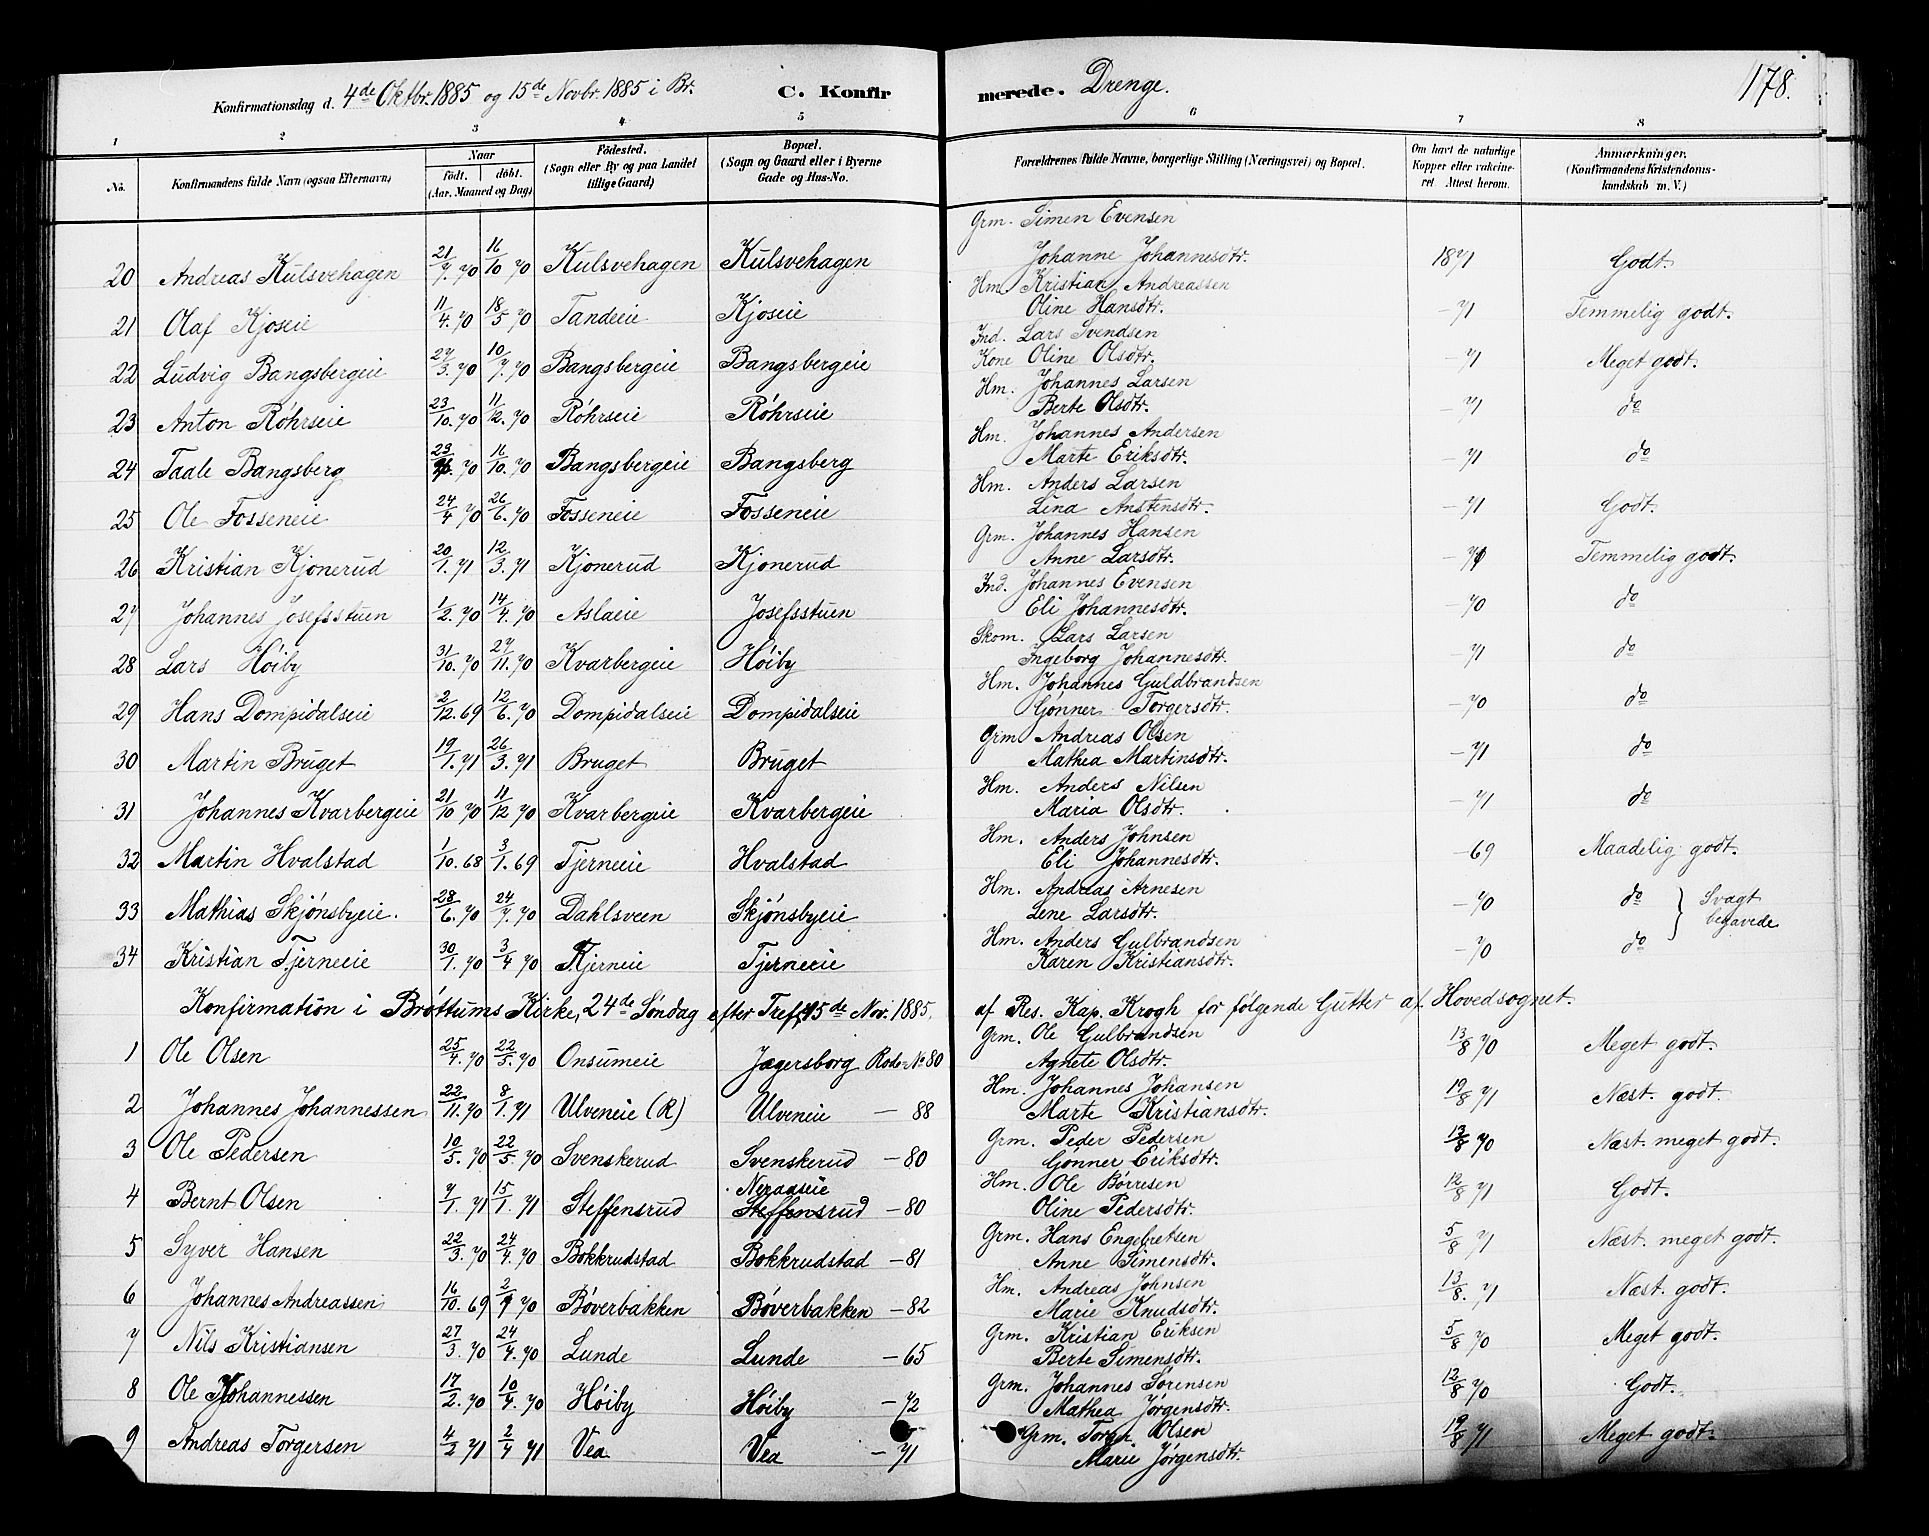 Konfirmationsdag d. 4de Oktbr. 1885 og 15de Novbr. 1885 i Br. C. Konfirmerede. Drenge. 178.
1 2 3 4 5 6 7 8
No. Konfirmandens fulde Navn (ogsaa Efternavn) Naar födt. döbt. (Aar, Maaned og Dag) Födested. (Sogn eller By og paa Landet tillige Gaard) Bopæl. (Sogn og Gaard eller i Byerne Gade og Hus-No. Forældrenes fulde Navne, borgerlige Stilling (Næringsvei) og Bopæl. Om havt de naturlige Kopper eller vakcineret. Attest herom. Anmærkninger. (Konfirmandens Kristendomskundskab m. V.)
Grm. Simen Evensen
20 Andreas Kulsvehagen 21/7. 70 16/10 70 Kulsvehagen Kulsvehagen Johanne Johannesdtr. 1871 Godt.
Hm. Kristian Andreassen
21 Olaf Kjoseie 11/4. 70 18/5 70 Tandeeie Kjoseie Oline Hansdtr. -71 Temmelig godt.
Ind. Lars Svendsen
22 Ludvig Bangsbergeie 27/3. 70 10/7. 70 Bangsbergeie Bangsbergeie Kone Oline Olsdtr. -71 Meget godt.
Hm. Johannes Larsen
23 Anton Röhrseie 23/10. 70 11/12. 70 Röhrseie Röhrseie Berte Olsdtr. -71 do
Hm. Johannes Andersen
24 Taale Bangsberg 23/ . 70 16/10. 70 Bangsbergeie Bangsberg Marte Eriksdtr. -71 do
Hm. Anders Larsen
25 Ole Fosseneie 24/4 70 26/6. 70 Fosseneie Fosseneie Lina Anstensdtr. -71 Godt.
Grm. Johannes Hansen
26 Kristian Kjonerud 20/1. 71 12/3. 71 Kjonerud Kjonerud Anne Larsdtr. -71 Temmelig godt.
Ind. Johannes Evensen
27 Johannes Josefsstuen 1/2. 70 14/4. 70 Aslaeie Josefsstuen Eli Johannesdtr. -70 do
Skom. Lars Larsen
28 Lars Höiby 31/10. 70 27/11. 70 Kvarbergeie Höiby Ingeborg Johannesdtr. -71 do
Hm. Johannes Guldbrandsen
29 Hans Dompidalseie 2/12. 69 12/6. 70 Dompidalseie Dompidalseie Gönner Torgersdtr. -70 do
Grm Andreas Olsen
30 Martin Bruget 19/1. 71 26/3. 71 Bruget Bruget Mathea Martinsdtr. -71 do
Hm. Anders Nilsen
31 Johannes Kvarbergeie 21/10 70 11/12 70 Kvarbergeie Kvarbergeie Maria Olsdtr. -71 do
Hm. Anders Johnsen
32 Martin Hvalstad 1/10. 68 3/1. 69 Tjerneeie Hvalstad Eli Johannesdtr. -69 Maadelig godt.
Hm. Andreas Arnesen
33 Mathias Skjönsbyeie. 28/6. 70 24/7. 70 Dahlsveen Skjönsbyeie Lene Larsdtr. -70 do } Svagt begavede
Hm. Anders Gulbrandsen
34 Kristian Tjerneeie 30/1. 70 3/4 70 Tjerneie Tjerneeie Karen Kristiansdtr. -70 do
Konfirmation i Bröttums Kirke, 24de Söndag efter Tref. 15de Nov. 1885. af Res. Kap. Krogh for fölgende Gutter af Hovedsognet.
Grm. Ole Gulbrandsen
1 Ole Olsen 25/4. 70 22/5. 70 Onsumeie Jægersborg Rode No 80 Agnete Olsdtr. 13/8 70 Meget godt.
Hm. Johannes Johansen
2 Johannes Johannessen 22/11. 70 8/1. 71 Ulveneie (R) Ulveneie - 88 Marte Kristiansdtr. 19/8 71 Næst. godt.
Grm. Peder Pedersen
3 Ole Pedersen 10/5. 70 22/5. 70 Svenskerud Svenskerud - 80 Gönner Eriksdtr. 13/8 70 Næst. meget godt.
Neraaseie Hm. Ole Börresen
4 Bernt Olsen 7/1. 71 15/1. 71 Steffensrud Steffensrud - 80 Oline Pedersdtr. 12/8 71 Godt.
Grm. Hans Engebretsen
5 Syver Hansen 22/3. 70 24/4. 70 Bokkrudstad Bokkrudstad - 81 Anne Simensdtr. 5/8 71 Næst. meget godt.
Hm. Andreas Johnsen
6 Johannes Andreassen 16/10. 69 2/ 70 Böverbakken Böverbakken - 82 Marie Knudsdtr. 13/8. 71 Næst. godt.
Grm. Kristian Eriksen
7 Nils Kristiansen 27/3. 70 24/4. 70 Lunde Lunde - 65 Berte Simensdtr. 5/8 70 Meget godt.
Grm. Johannes Sörensen
8 Ole Johannessen 17/2. 70 10/4. 70 Höiby Höiby - 72 Mathea Jörgensdtr. 12/8 70 Godt.
Grm. Torger Olsen
9 Andreas Torgersen 4/2 71 2/4 71 Vea Vea - 71 Marie Jörgensdtr. 19/8 71 Meget godt.